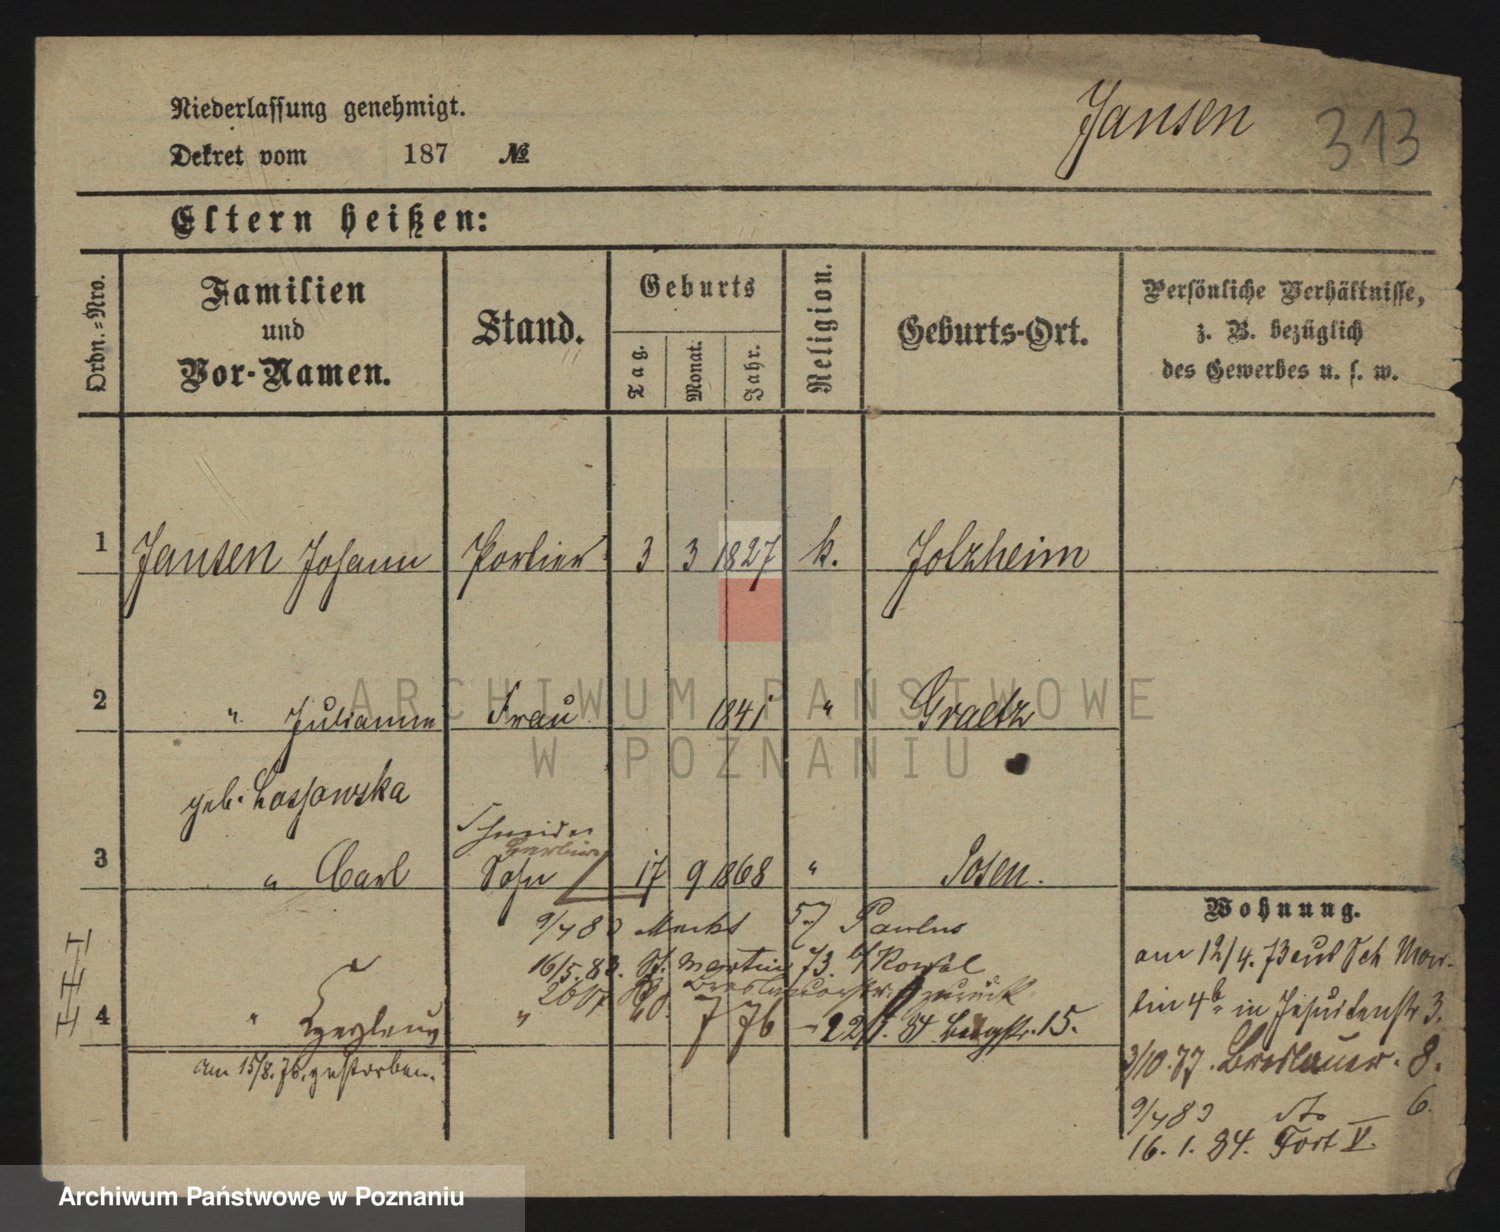 Niederlassung genehmigt.
Dekret vom 187 №
Jansen 313
Eltern heißen:
Ordn.=Nro.
Familien
und
Vor-Namen.
Stand.
Geburts
Tag.
Monat.
Jahr.
Religion.
Geburts-Ort.
Persönliche Verhältnisse,
z. B. bezüglich
des Gewerbes u. s. w.
1 Jansen Johann Portier 3 3 1827 k. Jolzheim
2 " Julianna Frau 1841 " Graetz
geb. Lossowska
Schneider
3 " Carl Sohn 17 9 1868 " Posen.
Wohnung.
9/7 83 57 Paulus
16/5. 83. St. Martin 73. b/ Kowal
26/7 zurück
4 " " 20. 7 76 - 22/7. 84 Bergstr. 15.
am 15/8. 76. gestorben.
am 12/4. 73 aus Sch Mar-
tin 4b in Jesuitenstr 3.
3/10. 77. Breslauer. 8.
9/7 83 dto 6.
16. 1. 84. Fort V.
ARCHIWUM PAŃSTWOWE
W POZNANIU
Archiwum Państwowe w Poznaniu